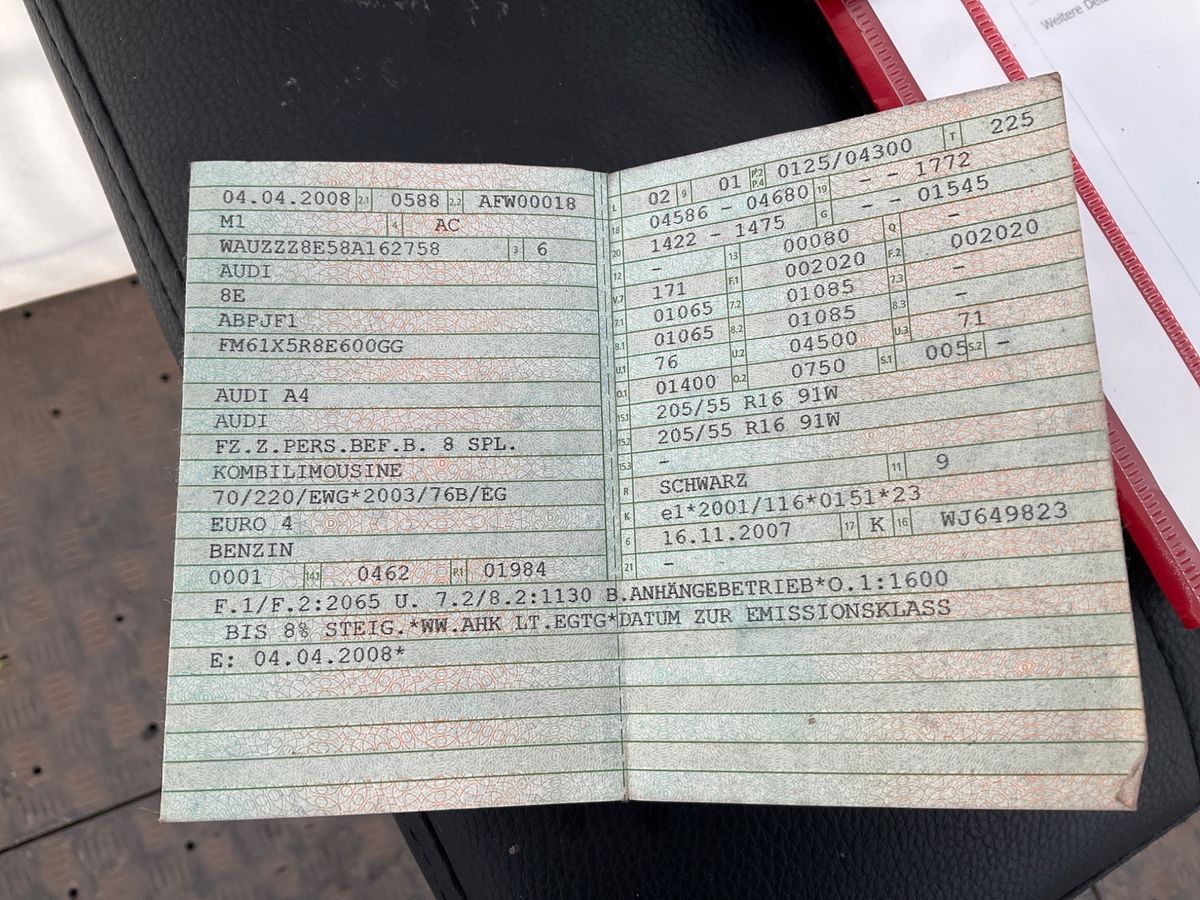 Weitere De
04.04.2008 2.1 0588 2.2 AFW00018
M1 4 AC
WAUZZZ8E58A162758 3 6
AUDI
8E
ABPJF1
FM61X5R8E600GG
AUDI A4
AUDI
FZ.Z.PERS.BEF.B. 8 SPL.
KOMBILIMOUSINE
70/220/EWG*2003/76B/EG
EURO 4
BENZIN
0001 14.1 0462 P.1 01984
L 02 9 01 P.2 P.4 0125/04300 T 225
18 04586 - 04680 19 - - 1772
20 1422 - 1475 G - - 01545
12 - 13 00080 Q -
V.7 171 F.1 002020 F.2 002020
7.1 01065 7.2 01085 7.3 -
8.1 01065 8.2 01085 8.3 -
U.1 76 U.2 04500 U.3 71
O.1 01400 O.2 0750 S.1 005 S.2 -
15.1 205/55 R16 91W
15.2 205/55 R16 91W
15.3 -
R SCHWARZ 11 9
K e1*2001/116*0151*23
6 16.11.2007 17 K 16 WJ649823
21 -
F.1/F.2:2065 U. 7.2/8.2:1130 B.ANHÄNGEBETRIEB*O.1:1600
BIS 8% STEIG.*WW.AHK LT.EGTG*DATUM ZUR EMISSIONSKLASS
E: 04.04.2008*